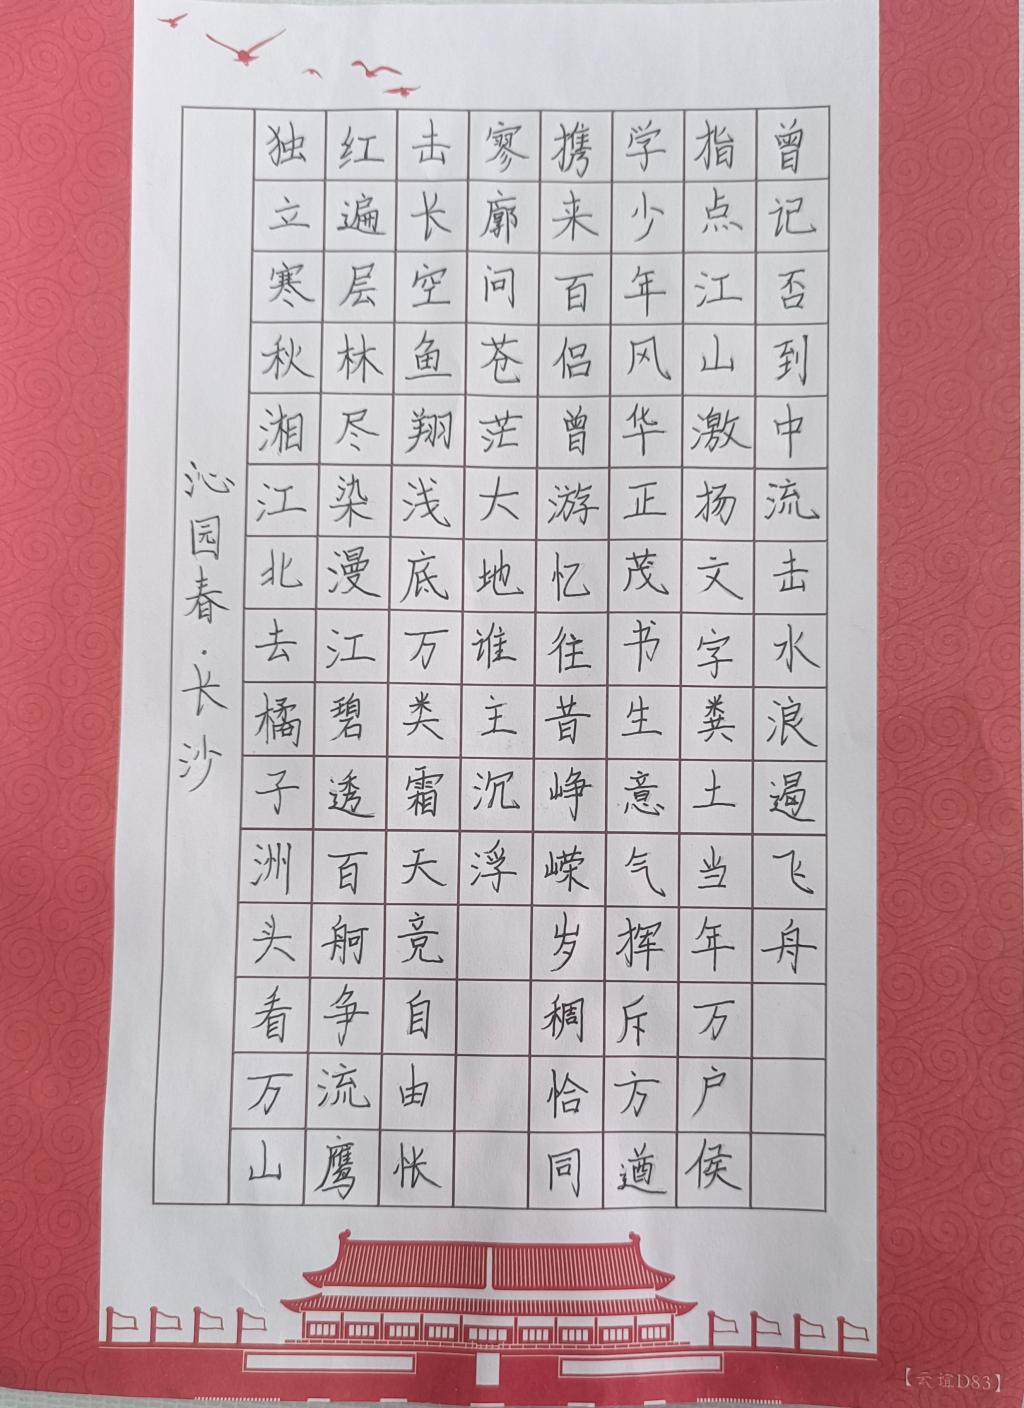 沁园春·长沙
独立寒秋湘江北去橘子洲头看万山
红遍层林尽染漫江碧透百舸争流鹰
击长空鱼翔浅底万类霜天竞自由怅
寥廓问苍茫大地谁主沉浮
携来百侣曾游忆往昔峥嵘岁稠恰同
学少年风华正茂书生意气挥斥方遒
指点江山激扬文字粪土当年万户侯
曾记否到中流击水浪遏飞舟
【云谊D83】